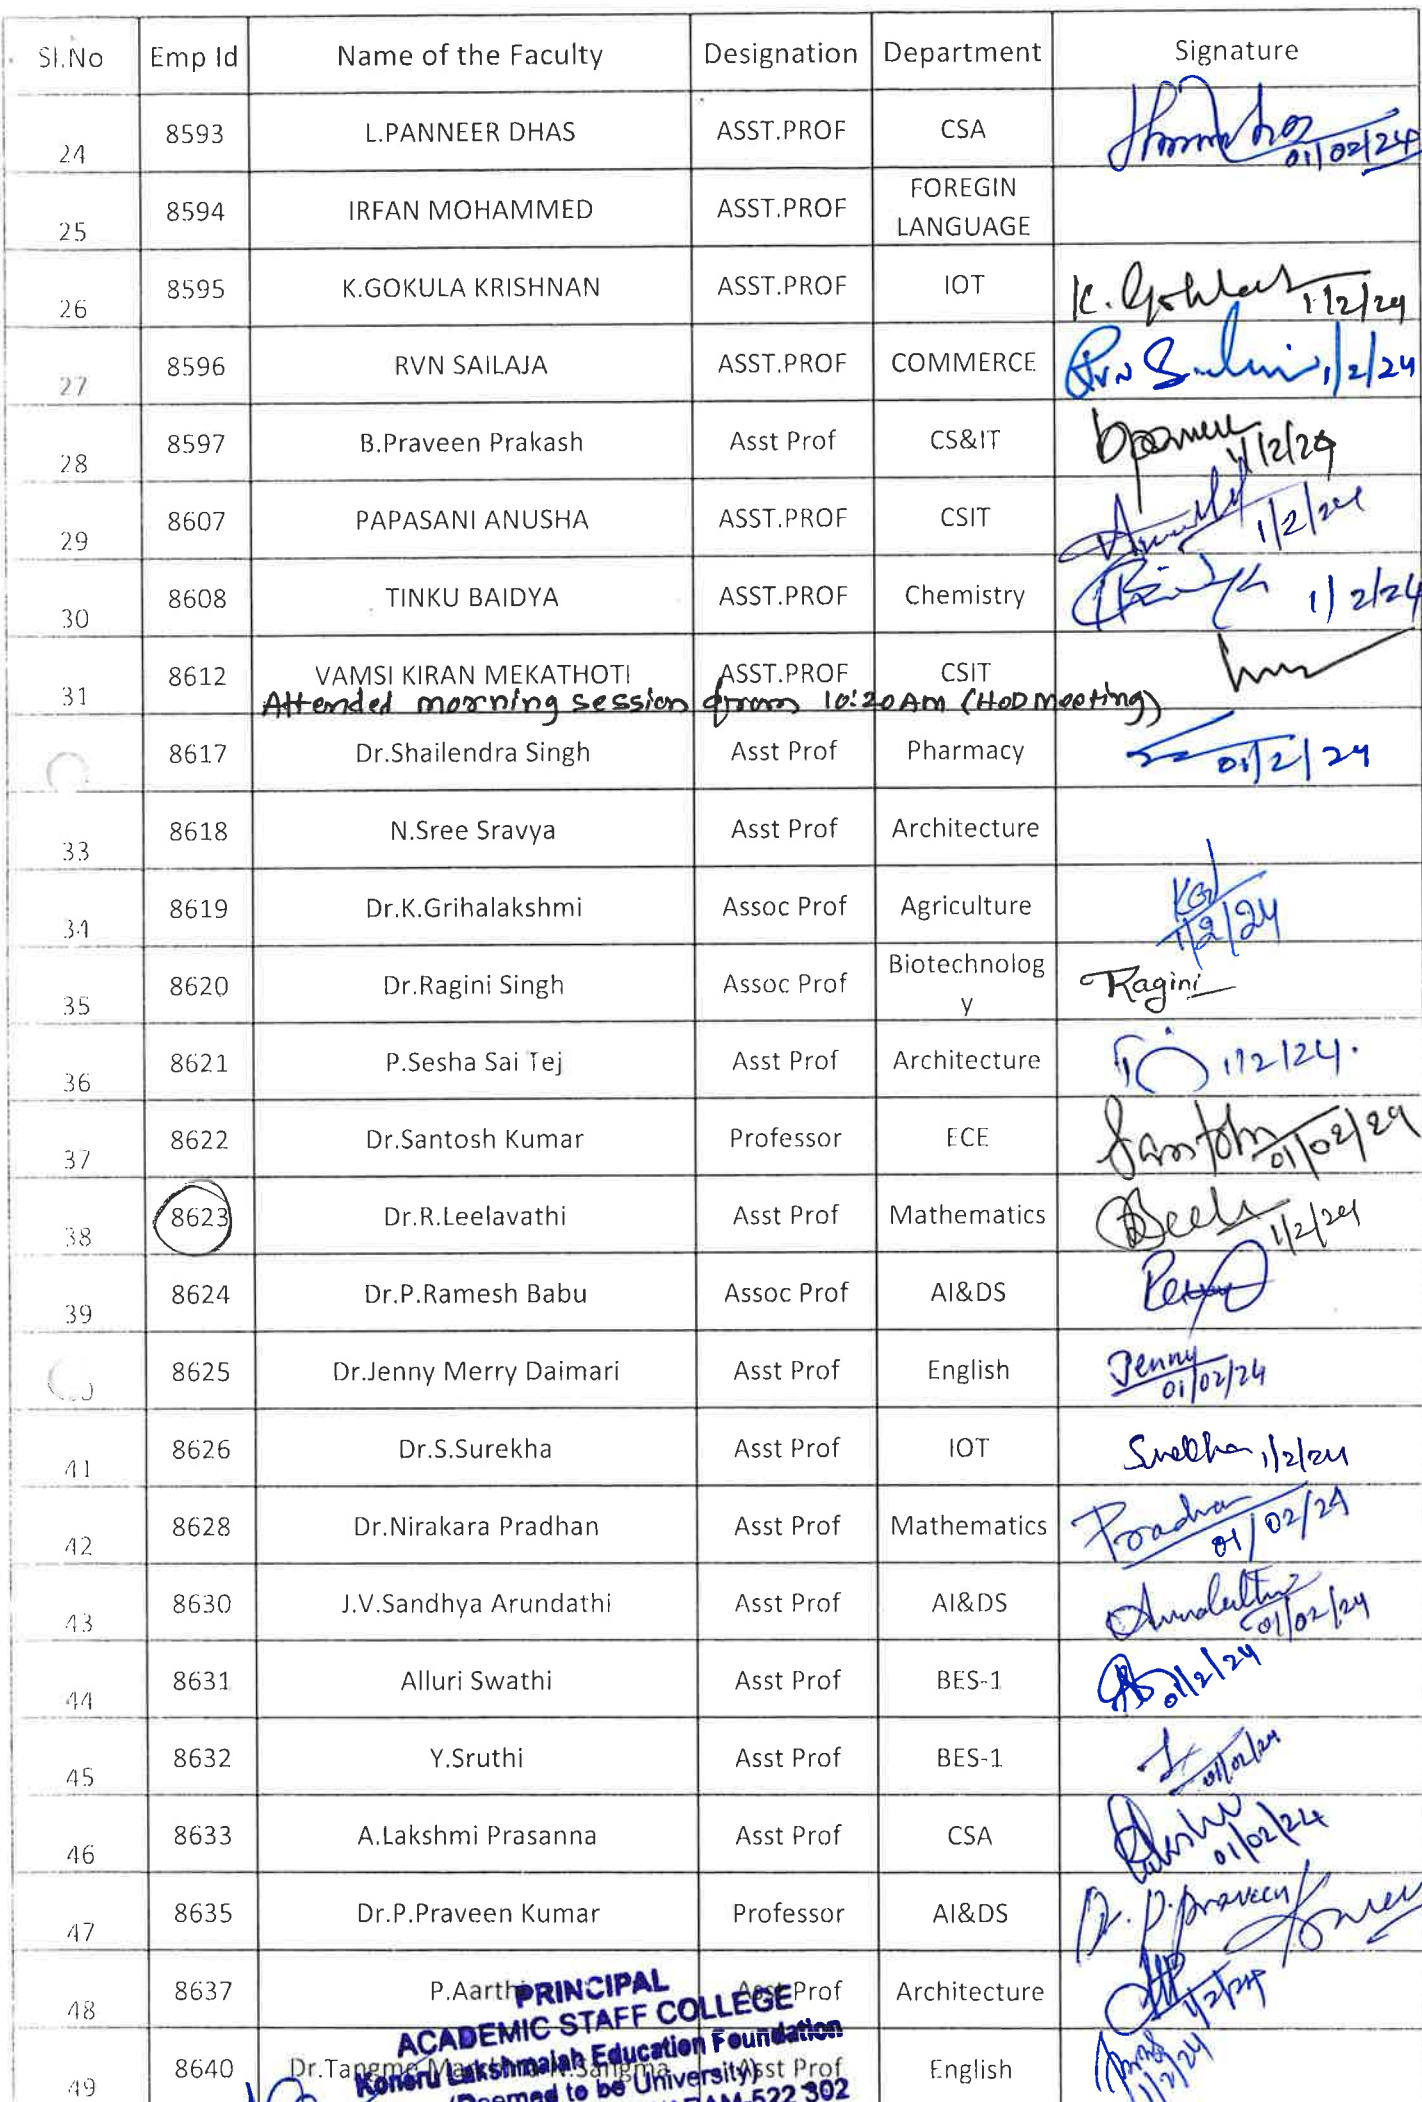 Sl.No Emp Id Name of the Faculty Designation Department Signature
24 8593 L.PANNEER DHAS ASST.PROF CSA 01/02/24
25 8594 IRFAN MOHAMMED ASST.PROF FOREGIN
LANGUAGE
26 8595 K.GOKULA KRISHNAN ASST.PROF IOT K. 1/2/24
27 8596 RVN SAILAJA ASST.PROF COMMERCE RVN 1/2/24
28 8597 B.Praveen Prakash Asst Prof CS&IT 1/2/24
29 8607 PAPASANI ANUSHA ASST.PROF CSIT 1/2/24
30 8608 TINKU BAIDYA ASST.PROF Chemistry 1/2/24
31 8612 VAMSI KIRAN MEKATHOTI ASST.PROF CSIT
Attended morning session from 10:20AM (HOD Meeting)
8617 Dr.Shailendra Singh Asst Prof Pharmacy 01/2/24
33 8618 N.Sree Sravya Asst Prof Architecture
34 8619 Dr.K.Grihalakshmi Assoc Prof Agriculture 1/2/24
35 8620 Dr.Ragini Singh Assoc Prof Biotechnolog Ragini
y
36 8621 P.Sesha Sai Tej Asst Prof Architecture 1/2/24.
37 8622 Dr.Santosh Kumar Professor ECE Santosh 01/02/24
38 8623 Dr.R.Leelavathi Asst Prof Mathematics 1/2/24
39 8624 Dr.P.Ramesh Babu Assoc Prof AI&DS
8625 Dr.Jenny Merry Daimari Asst Prof English Jenny
01/02/24
41 8626 Dr.S.Surekha Asst Prof IOT Surekha 1/2/24
42 8628 Dr.Nirakara Pradhan Asst Prof Mathematics Pradhan
01/02/24
43 8630 J.V.Sandhya Arundathi Asst Prof AI&DS Arundathi
01/02/24
44 8631 Alluri Swathi Asst Prof BES-1 01/2/24
45 8632 Y.Sruthi Asst Prof BES-1 01/02/24
46 8633 A.Lakshmi Prasanna Asst Prof CSA 01/02/24
47 8635 Dr.P.Praveen Kumar Professor AI&DS Dr. P. Praveen Kumar
48 8637 P.Aarthi Asst Prof Architecture 1/2/24
PRINCIPAL
ACADEMIC STAFF COLLEGE
Koneru Lakshmaiah Education Foundation
49 8640 Dr.Tangme Sangma Asst Prof English 1/2/24
(Deemed to be University)
522 302